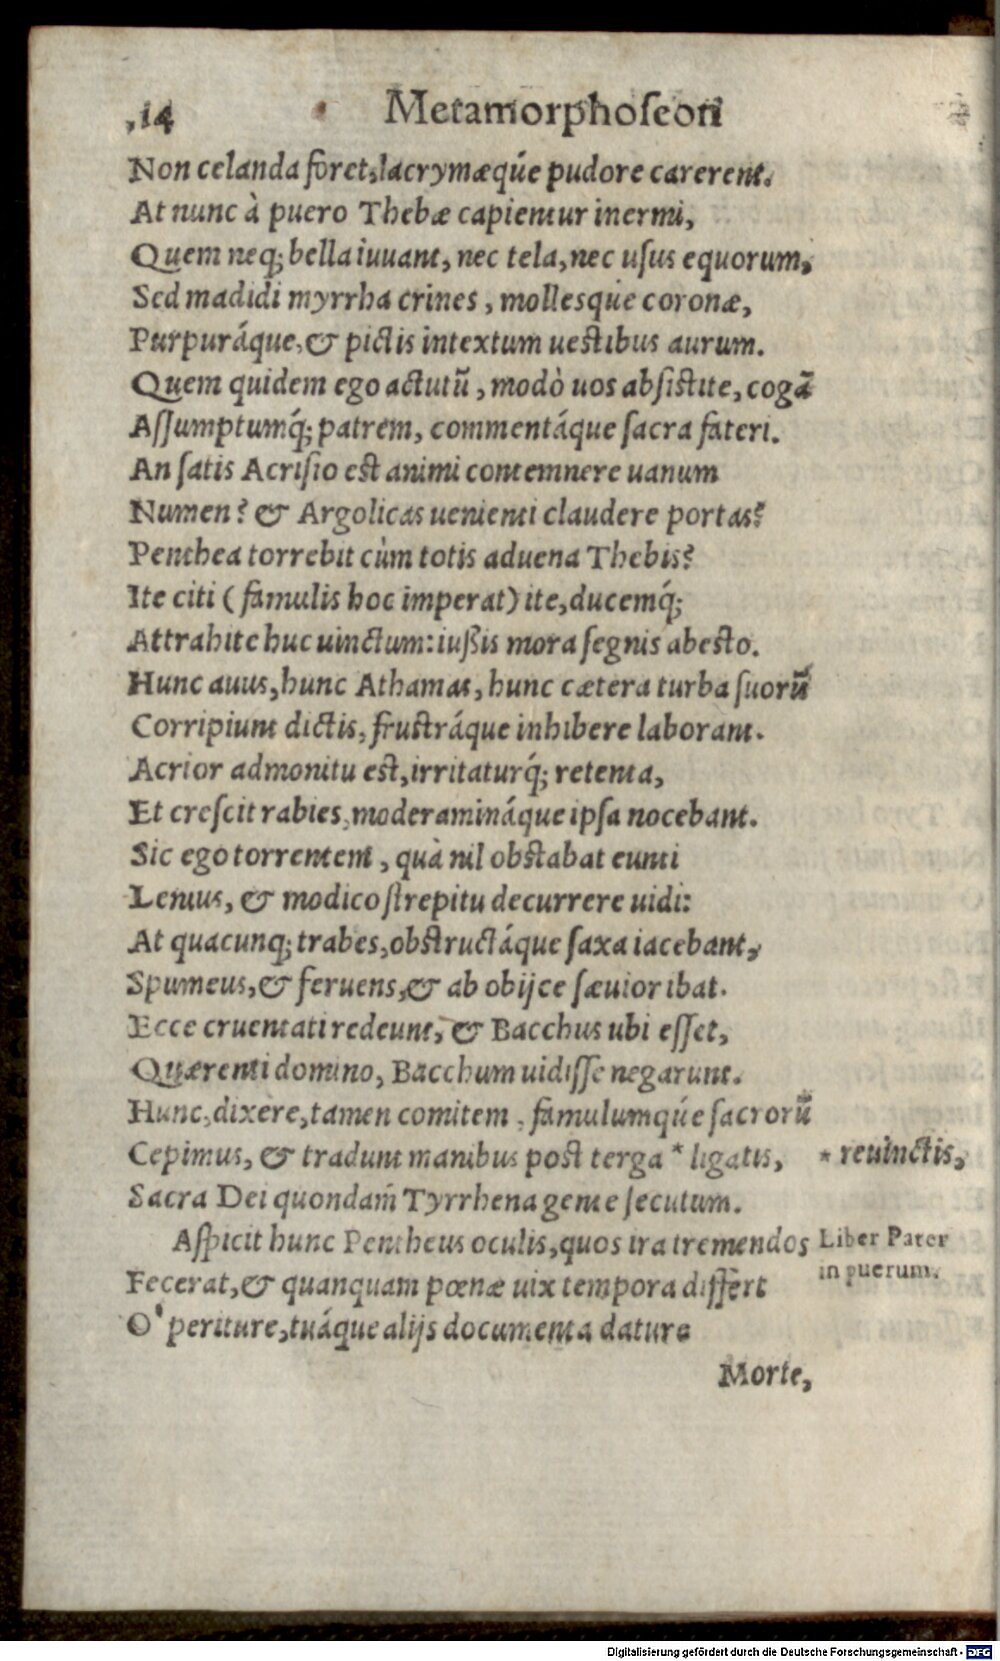 ,14 Metamorphoſeon
Non celanda foret, lacrymæq́ue pudore carerent.
At nunc à puero Thebæ capientur inermi,
Quem neq; bella iuuant, nec tela, nec uſus equorum,
Sed madidi myrrha crines, molleſque coronæ,
Purpuráque, & pictis intextum ueſtibus aurum.
Quem quidem ego actutū, modò uos abſiſtite, cogā
Aſſumptumq́; patrem, commentáque ſacra fateri.
An ſatis Acriſio eſt animi contemnere uanum
Numen? & Argolicas uenienti claudere portas?
Penthea torrebit cùm totis aduena Thebis?
Ite citi (famulis hoc imperat) ite, ducemq́;
Attrahite huc uinctum: iußis mora ſegnis abeſto.
Hunc auus, hunc Athamas, hunc cætera turba ſuorū
Corripiunt dictis, fruſtráque inhibere laborant.
Acrior admonitu eſt, irritaturq́; retenta,
Et creſcit rabies, moderamináque ipſa nocebant.
Sic ego torrentem, quà nil obſtabat eunti
Lenius, & modico ſtrepitu decurrere uidi:
At quacunq; trabes, obſtructáque ſaxa iacebant,
Spumeus, & feruens, & ab obijce ſæuior ibat.
Ecce cruentati redeunt, & Bacchus ubi eſſet,
Quærenti domino, Bacchum uidiſſe negarunt.
Hunc, dixère, tamen comitem, famulumq́ue ſacrorū
Cepimus, & tradunt manibus poſt terga * ligatis, * reuinctis,
Sacra Dei quondam Tyrrhena gente ſecutum.
Aſpicit hunc Pentheus oculis, quos ira tremendos Liber Pater
Fecerat, & quanquam pœnæ uix tempora differt in puerum.
O' periture, tuáque alijs documenta dature
Morte,
Digitalisierung gefördert durch die Deutsche Forschungsgemeinschaft - DFG